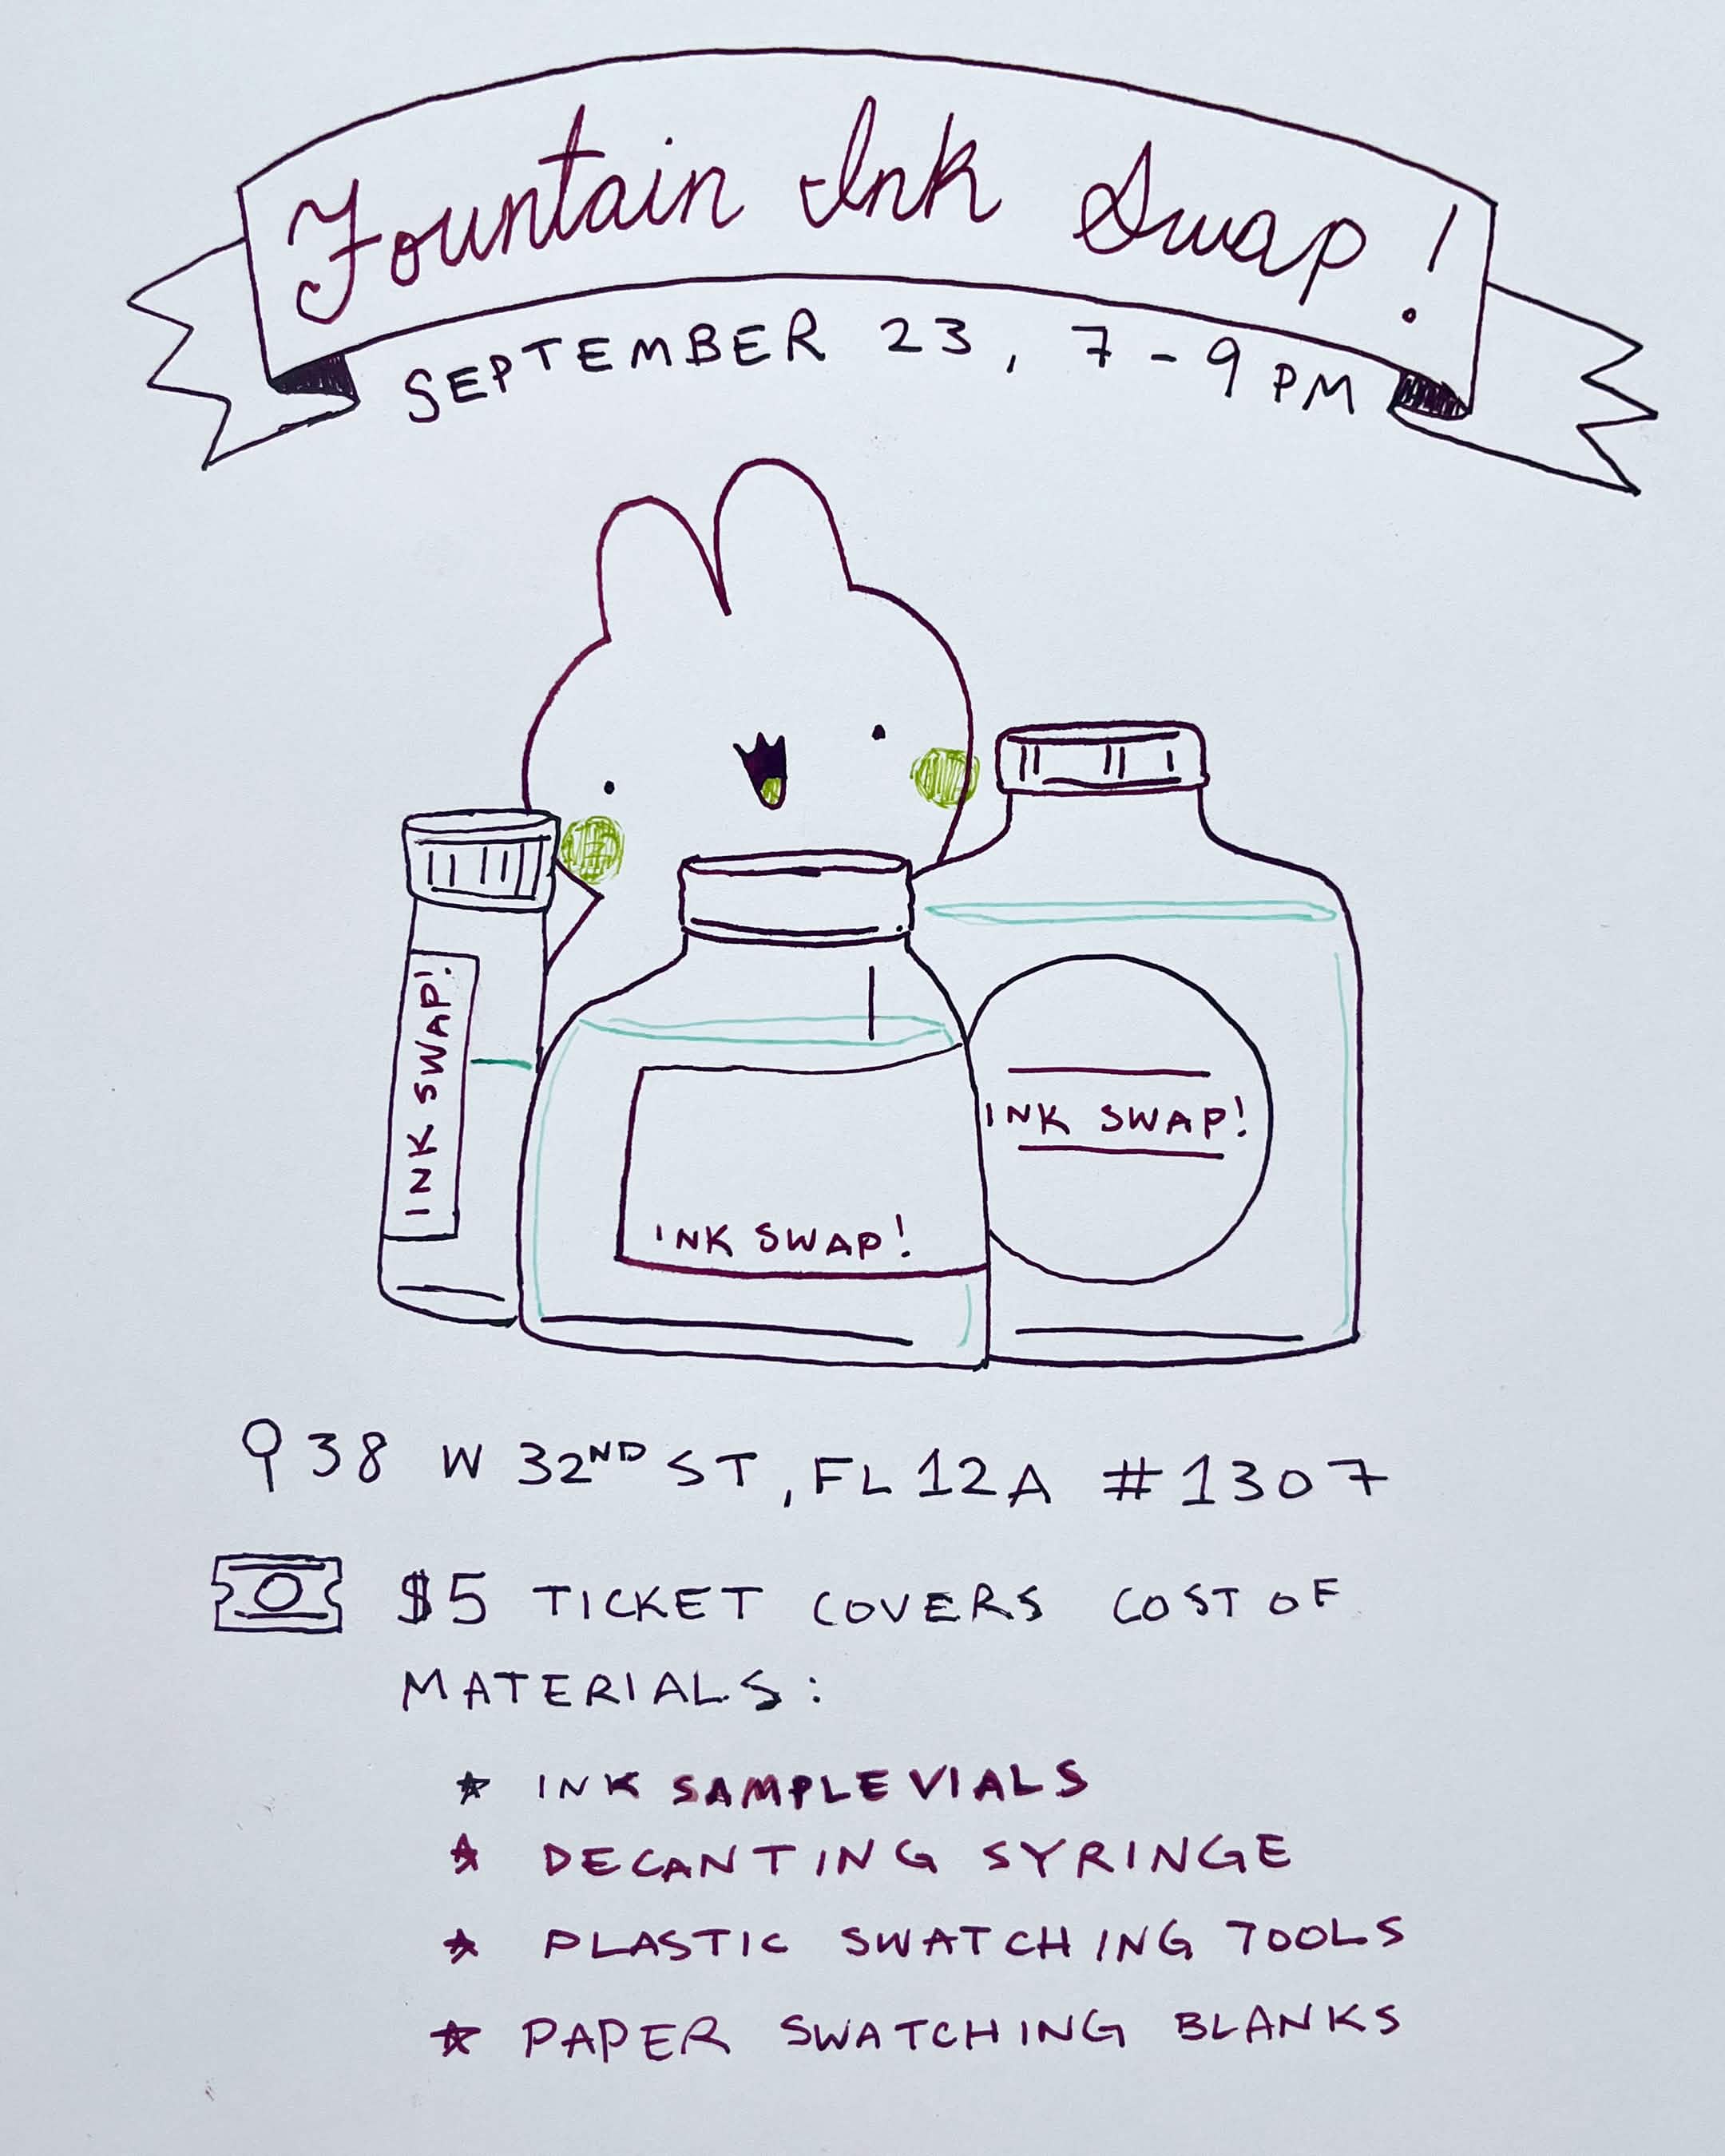 Fountain Ink Swap!
SEPTEMBER 23, 7-9 PM
INK SWAP!
INK SWAP!
INK SWAP!
38 W 32ND ST, FL 12A #1307
$5 TICKET COVERS COST OF
MATERIALS:
INK SAMPLE VIALS
DECANTING SYRINGE
PLASTIC SWATCHING TOOLS
PAPER SWATCHING BLANKS